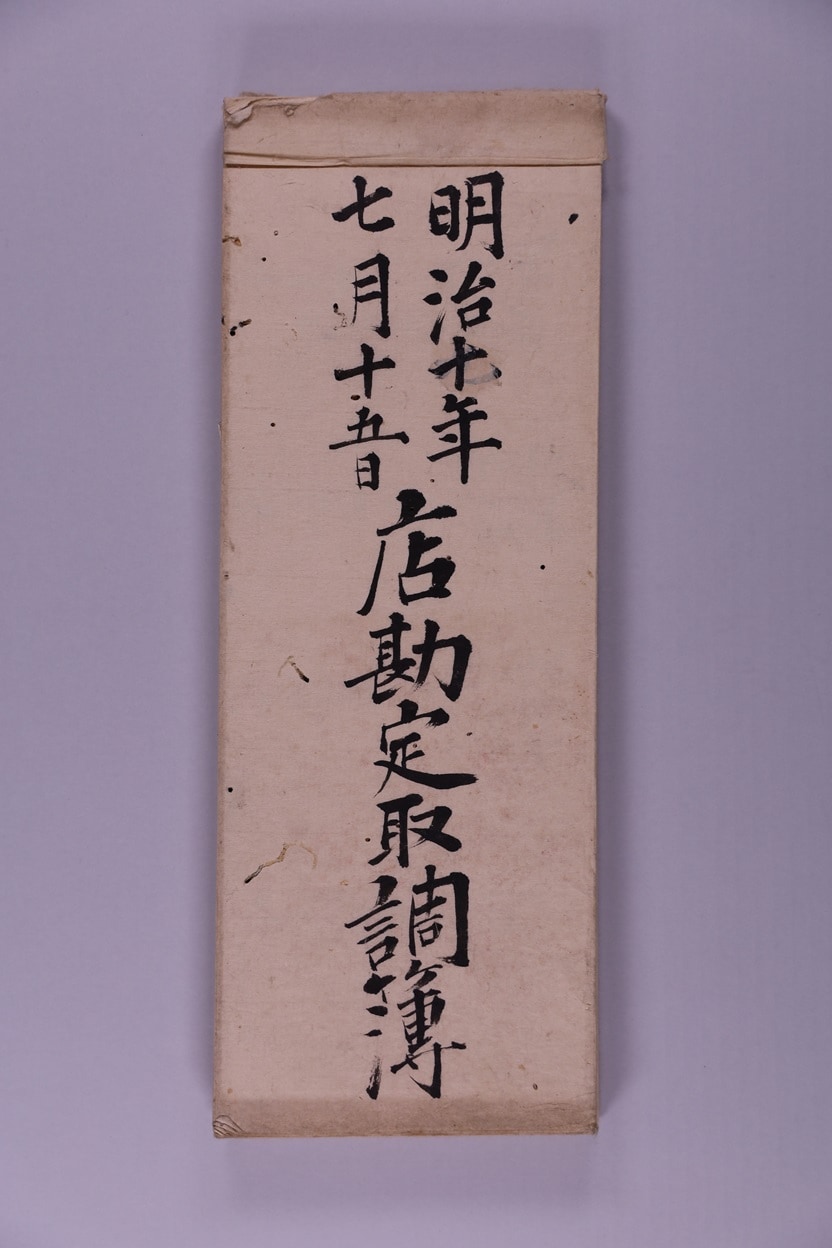 明治十年
七月十五日
店勘定取調簿